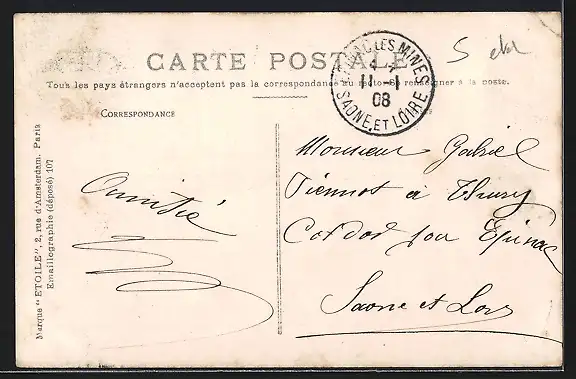 CARTE POSTALE
Tous les pays étrangers n'acceptent pas la correspondance au recto. Se renseigner à la poste.
LES MINES
11 - 1
08
SAONE-ET-LOIRE
CORRESPONDANCE
Marque "ETOILE", 2, rue d'Amsterdam. Paris
Emaillographie (déposé) 107
Amitié
Monsieur Gabriel
Viennot à Thury
par Epinac
Saone et Loire